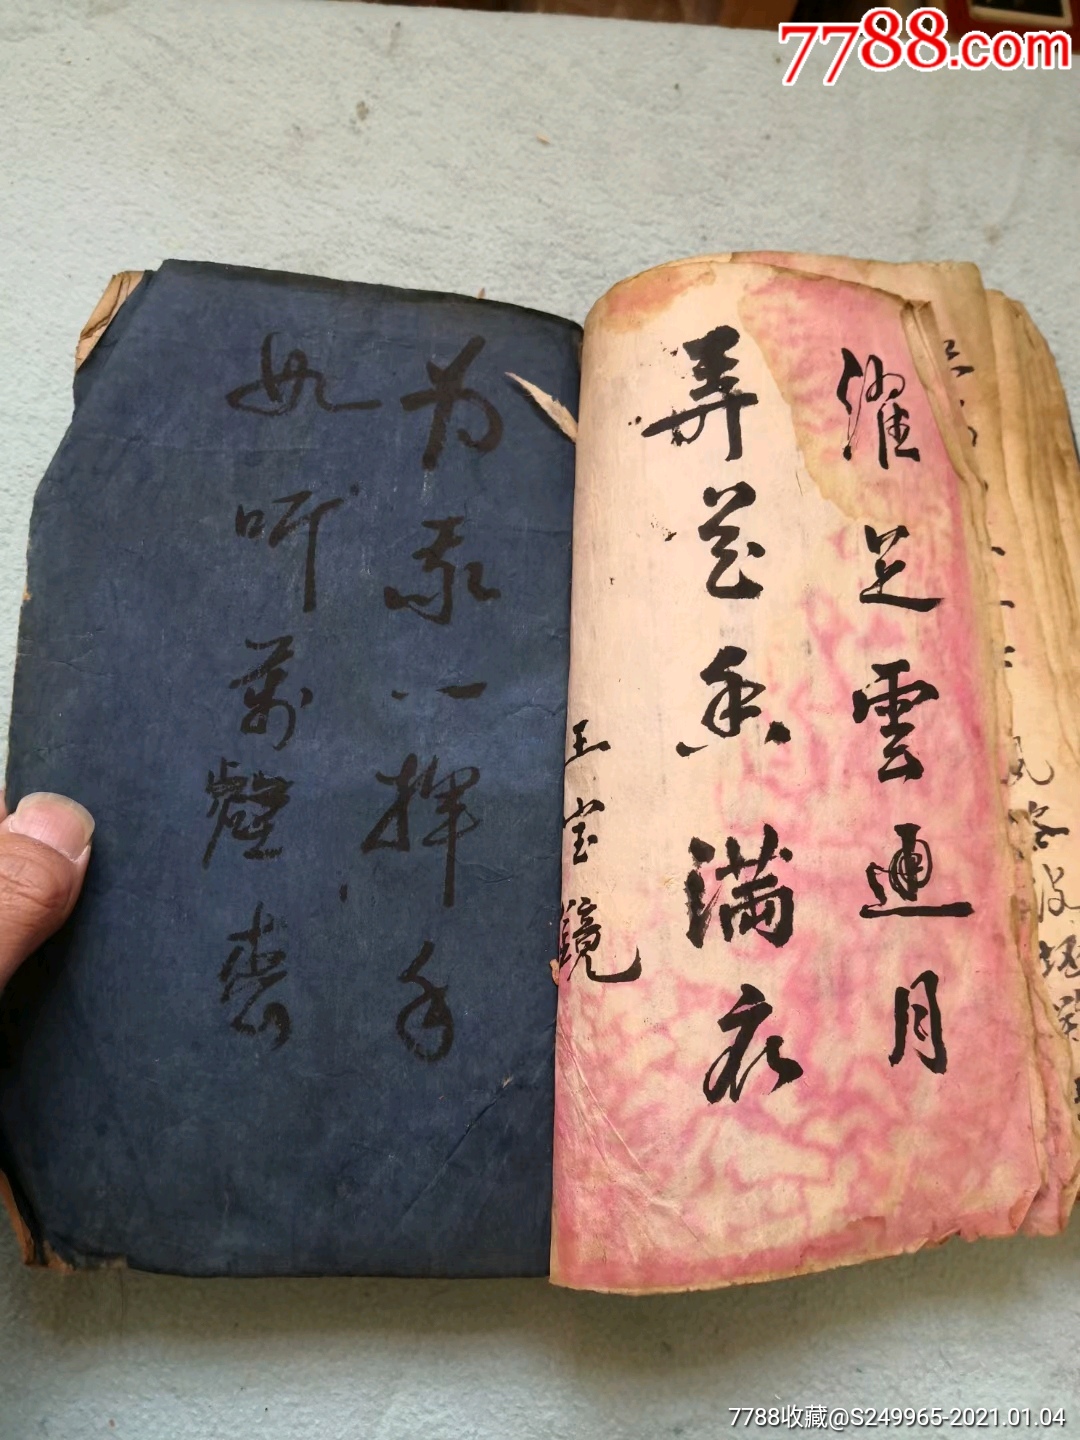 7788.com
濯足雲通月
弄花香满衣
王宝镜
为我一挥手
如听萬壑松
7788收藏@S249965-2021.01.04